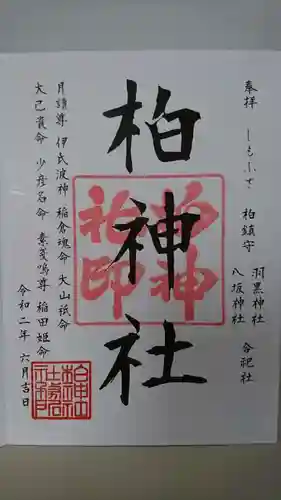 奉拝 しもふさ 柏鎮守 羽黒神社
八坂神社 合祀社
柏神社
柏神
社印
月読尊 伊氐波神 稲倉魂命 大山祇命
大己貴命 少彦名命 素戔嗚尊 稲田姫命
令和二年 六月吉日